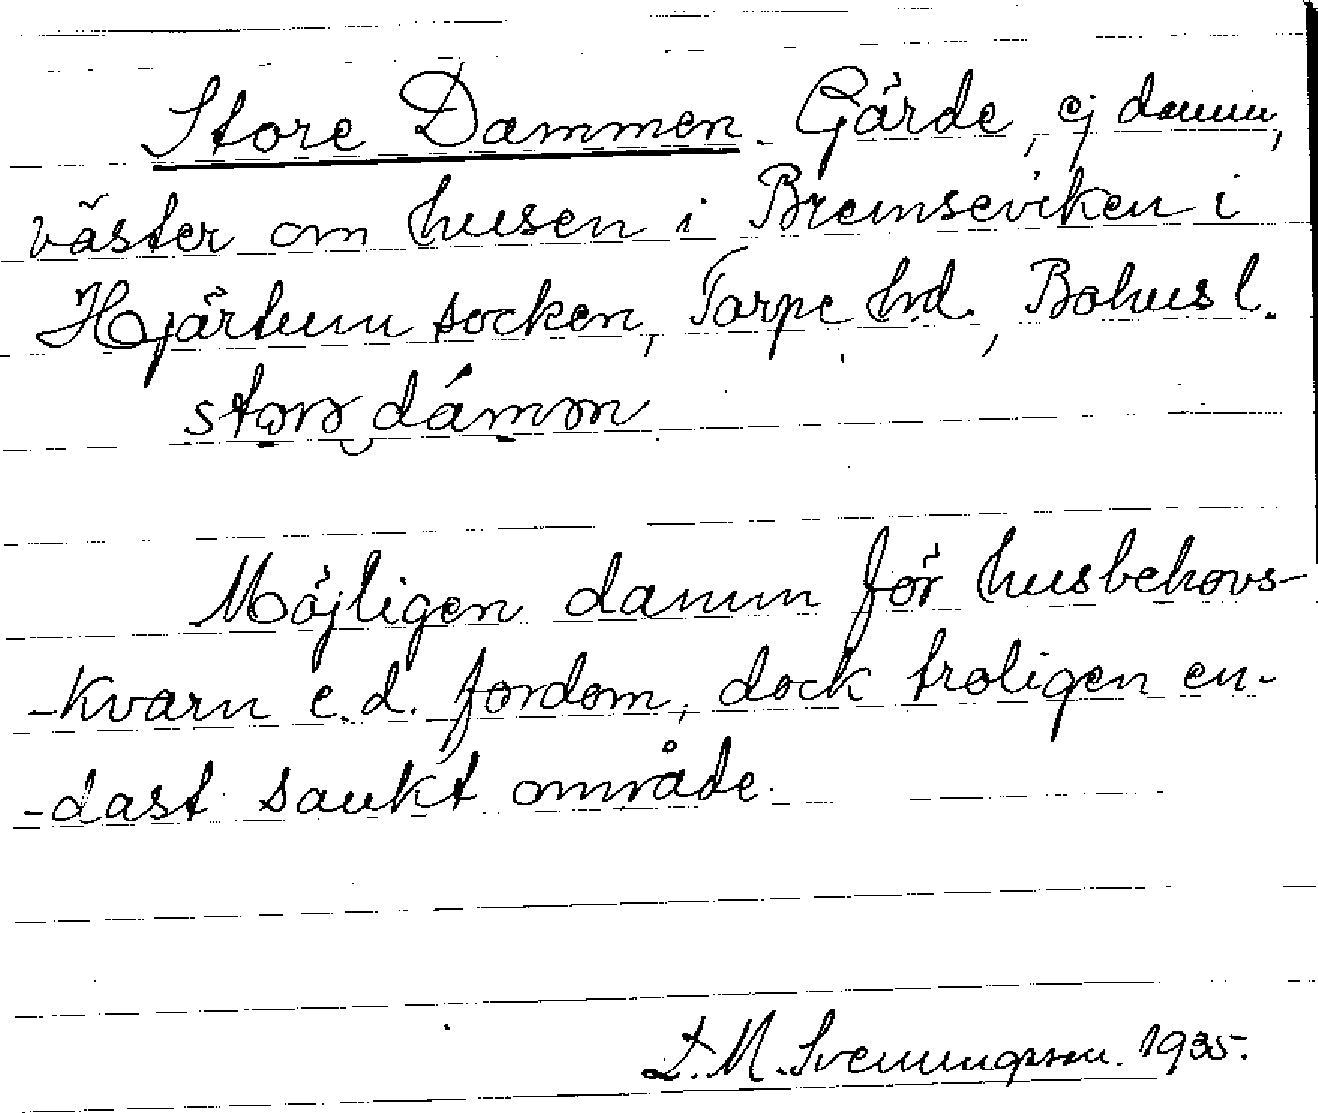 Store Dammen. Gärde, ej damm,
väster om husen i Bremseviken i
Hjärtum socken, Torpe hd., Bohusl.
Möjligen damm för husbehovs-
-kvarn e.d. fordom, dock troligen en-
-dast sankt område.
M. Svenungsson. 1935.